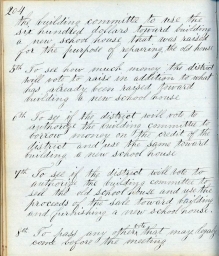 204
the building committe to use the
six hundred dollars toward building
a new school house that was raised
for the purpose of repairing the old house
5th To see how much money the district
will vote to raise in addition to what
has already been raised toward
building a new school house
6th To see if the district will vote to
authorize the building committee to
borrow money on the credit of the
district and use the same toward
building a new school house
7th To see if the district will vote to
authorize the building committee to
sell the old school house and use the
proceeds of the sale toward building
and furnishing a new school house.
8th To pass any other that may legally
come before the meeting